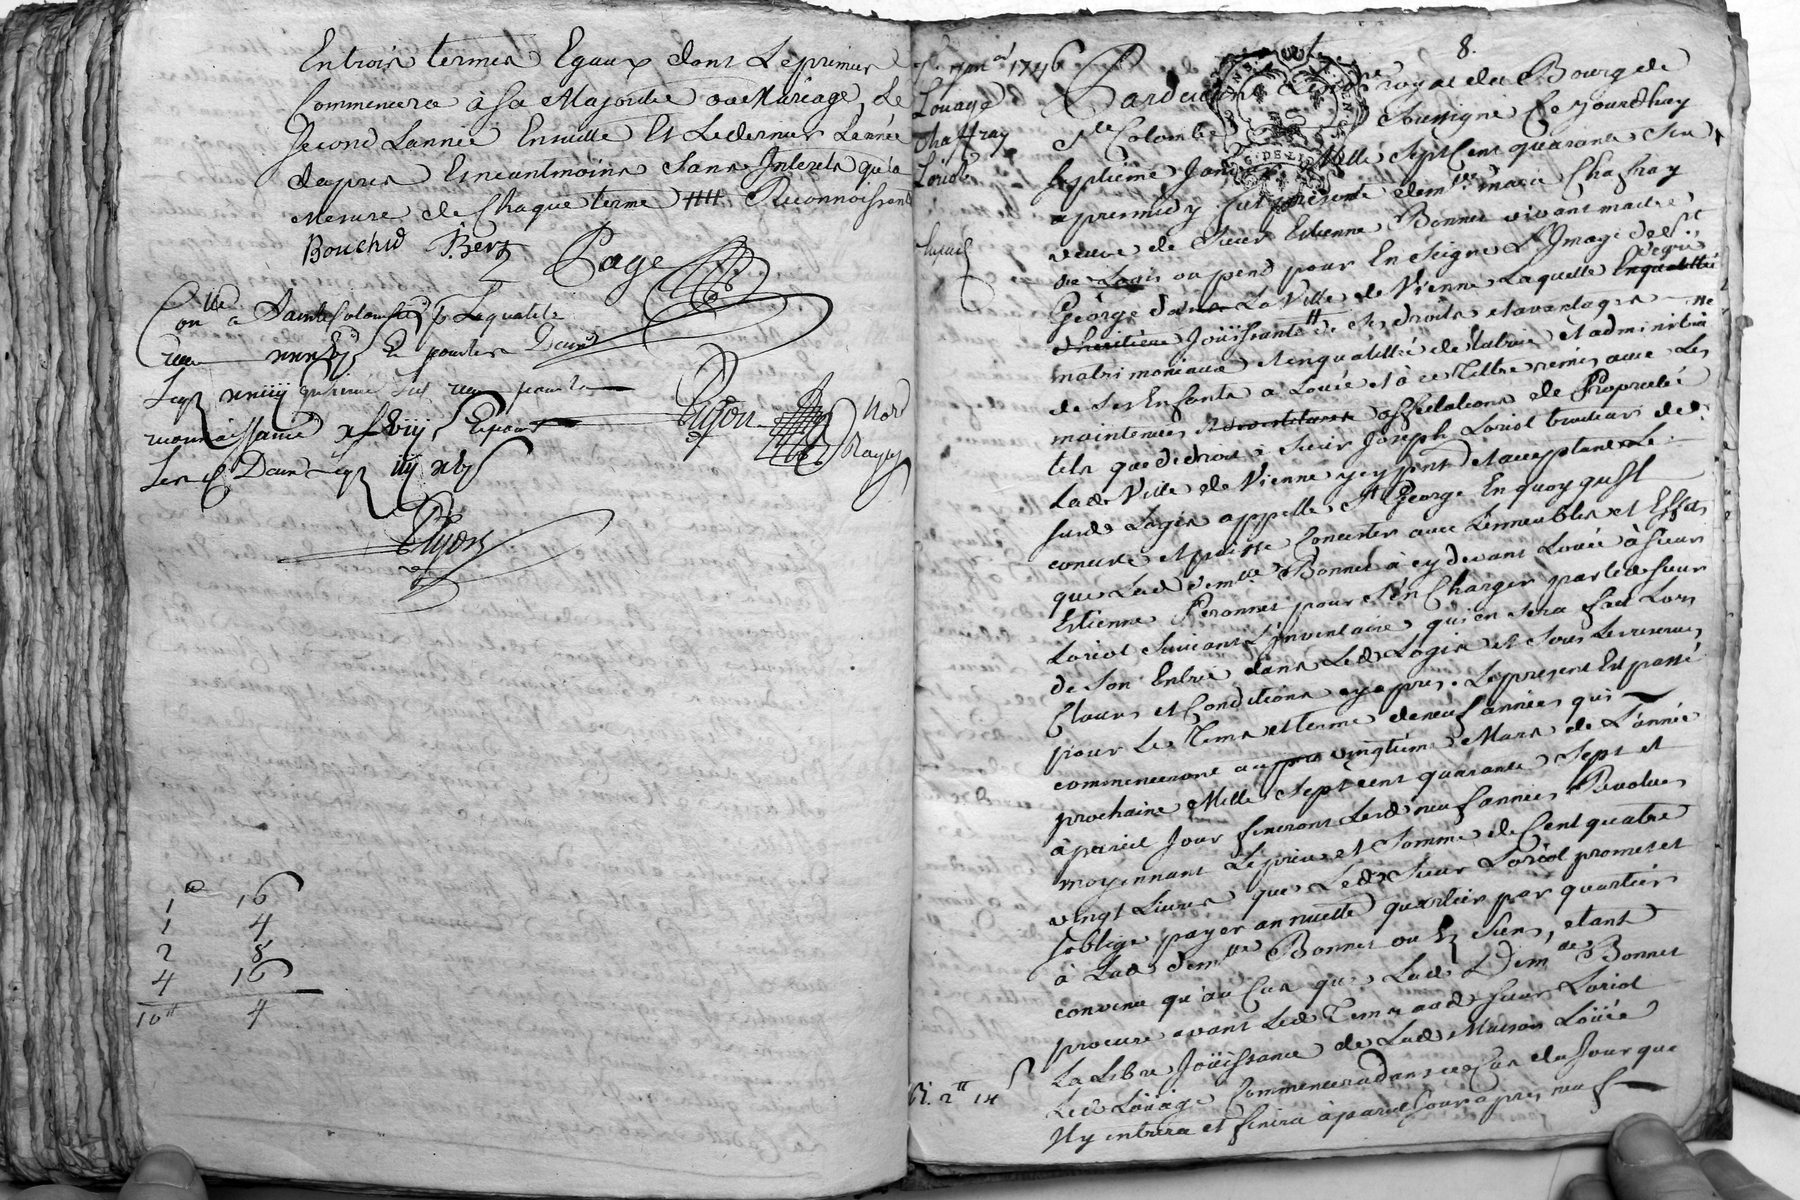 En trois termes Egaux dont Le premier
Commencera à sa Majorité ou Mariage, Le
second Lannée Ensuitte Et Le dernier Lannée
dapres Et neantmoins sans Interets qu'a
Mesure de Chaque terme Reconnoissent
Bouchud P. Bert Page
on a Sainte Colombe
Pigeon
1 16
1 4
2 8
4 16
10 4
8.
1746
Louage
Chaffray
Loriol
Pardevant royal du Bourg de
Ste Colombe soussigné Ce Jourdhuy
septiéme Janvier Mille sept Cent quarante six
apres midy fut presente demlle marie Chaffray
veuve de sieur Etienne Bonnet vivant maitre
de Logis ou pend pour Enseigne L'Image de St
George dans La Ville de Vienne Laquelle
Jouissante de ses droits et avantages
matrimoniaux et en qualitté de tutrice et administ
de ses Enfants a Louée et à ce tittre remis avec Les
maintenües affectations de Proprieté
tels que de droit à sieur Joseph Loriol traiteur de
Lad Ville de Vienne y present et acceptant Le
susd Logis appellé St George En quoy qu'Il
concerne et puisse Concister avec Les meubles et Effets
que Lad demlle Bonnet à cy devant Loüée à sieur
Etienne Peronnet pour s'en Charger par led sieur
Loriol suivant L'Inventaire qui en sera fait Lors
de son Entrée dans Led Logis et sous Les reserves
Clauses et Conditions cy apres. Le present Est passé
pour Le Tems et terme de neuf années qui
commenceront au vingtiéme Mars de L'année
prochaine Mille sept cent quarante sept et
à pareil Jour finiront Lesd neuf années Revolues
moyennant Le prix et somme de Cent quatre
vingt Livres que Led sieur Loriol promet et
s'oblige payer annuelle quartier par quartier
à Lad demlle Bonnet ou Es siens, etant
convenu qu'au Cas que Lad Demlle Bonnet
procure avant Led Tems aud sieur Loriol
La Libre Joüissance de Lad Maison Loüée
Led Loüage Commencera dans ce Cas du Jour que
Il y entrera et finira à pareil Jour apres neuf
2 14